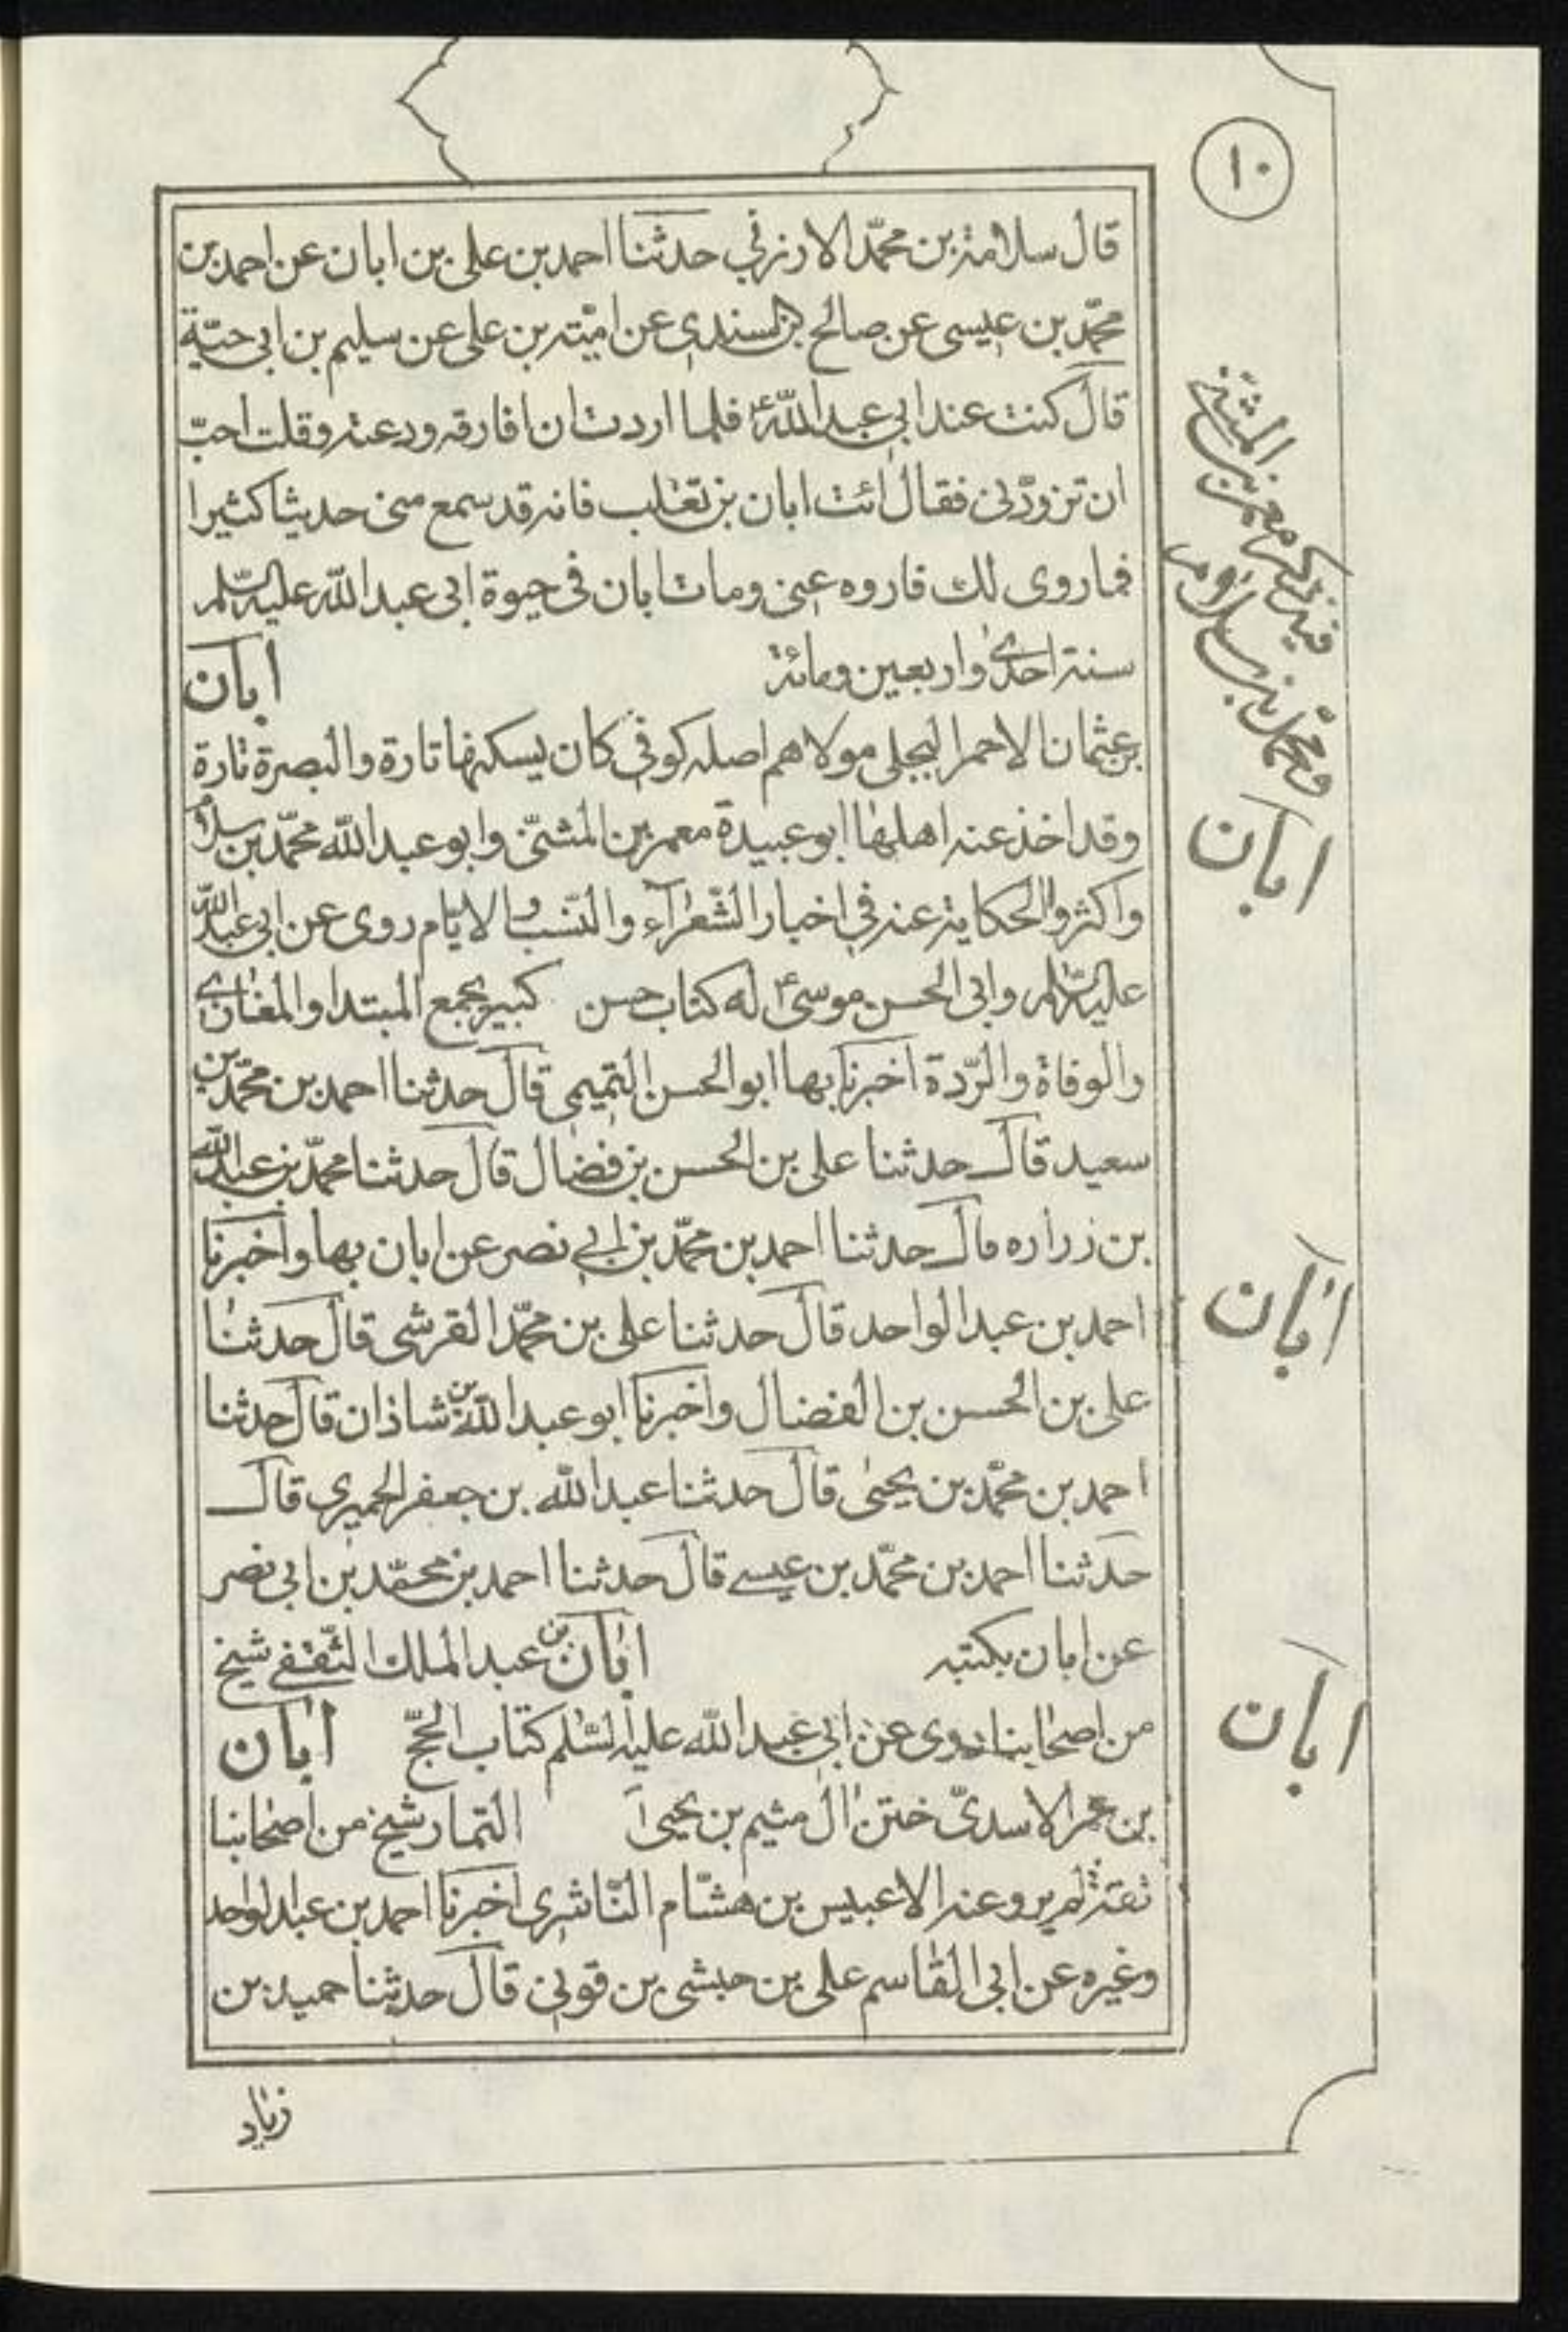 ١٠
قال سلامة بن محمّد الارزني حدثنا احمد بن على بن ابان عن احمد بن
محمّد بن عيسى عن صالح بن السندى عن اميّته بن على عن سليم بن ابى حيّة
قال كنت عند ابي عبد اللّه ع فلما اردت ان افارقه ودعته وقلت احبّ
ان تزوّدنى فقال ائت ابان بن تغلب فانه قد سمع منى حديثا كثيرا
فما روى لك فاروه عنى ومات ابان فى حيوة ابى عبد اللّه عليه السّلم
سنة احدى واربعين ومائة ابان
بن عثمان الاحمر البجلى مولاهم اصله كوفي كان يسكنها تارة والبصرة تارة
وقد اخذ عنه اهلها ابو عبيدة معمر بن المثنّى وابو عبد اللّه محمّد بن سلام
واكثروا الحكاية عنه في اخبار الشّعرآء والنّسب والايّام روى عن ابى عبد اللّه
عليه السّلم وابى الحسن موسى ع له كتاب حسن كبير يجمع المبتدا والمغازى
والوفاة والرّدة اخبرنا بها ابو الحسن التميمى قال حدثنا احمد بن محمّد بن
سعيد قال حدثنا على بن الحسن بن فضال قال حدثنا محمّد بن عبد اللّه
بن زراره قال حدثنا احمد بن محمّد بن ابي نصر عن ابان بها واخبرنا
احمد بن عبد الواحد قال حدثنا على بن محمّد القرشى قال حدثنا
على بن الحسن بن الفضال واخبرنا ابو عبد اللّه بن شاذان قال حدثنا
احمد بن محمّد بن يحيى قال حدثنا عبد اللّه بن جعفر الحميرى قال
حدثنا احمد بن محمّد بن عيسى قال حدثنا احمد بن محمّد بن ابى نصر
عن ابان بكتبه ابان بن عبد الملك الثّقفى شيخ
من اصحابنا روى عن ابى عبد اللّه عليه السّلم كتاب الحجّ ابان
بن عمر الاسدىّ ختن ال ميثم بن يحيى التمار شيخ من اصحابنا
ثقة لم يرو عنه الا عبيس بن هشام النّاشرى اخبرنا احمد بن عبد الواحد
وغيره عن ابى القاسم على بن حبشى بن قونى قال حدثنا حميد بن
زياد
معمر بن المثنى
ومحمد بن سلام
ابان
ابان
ابان